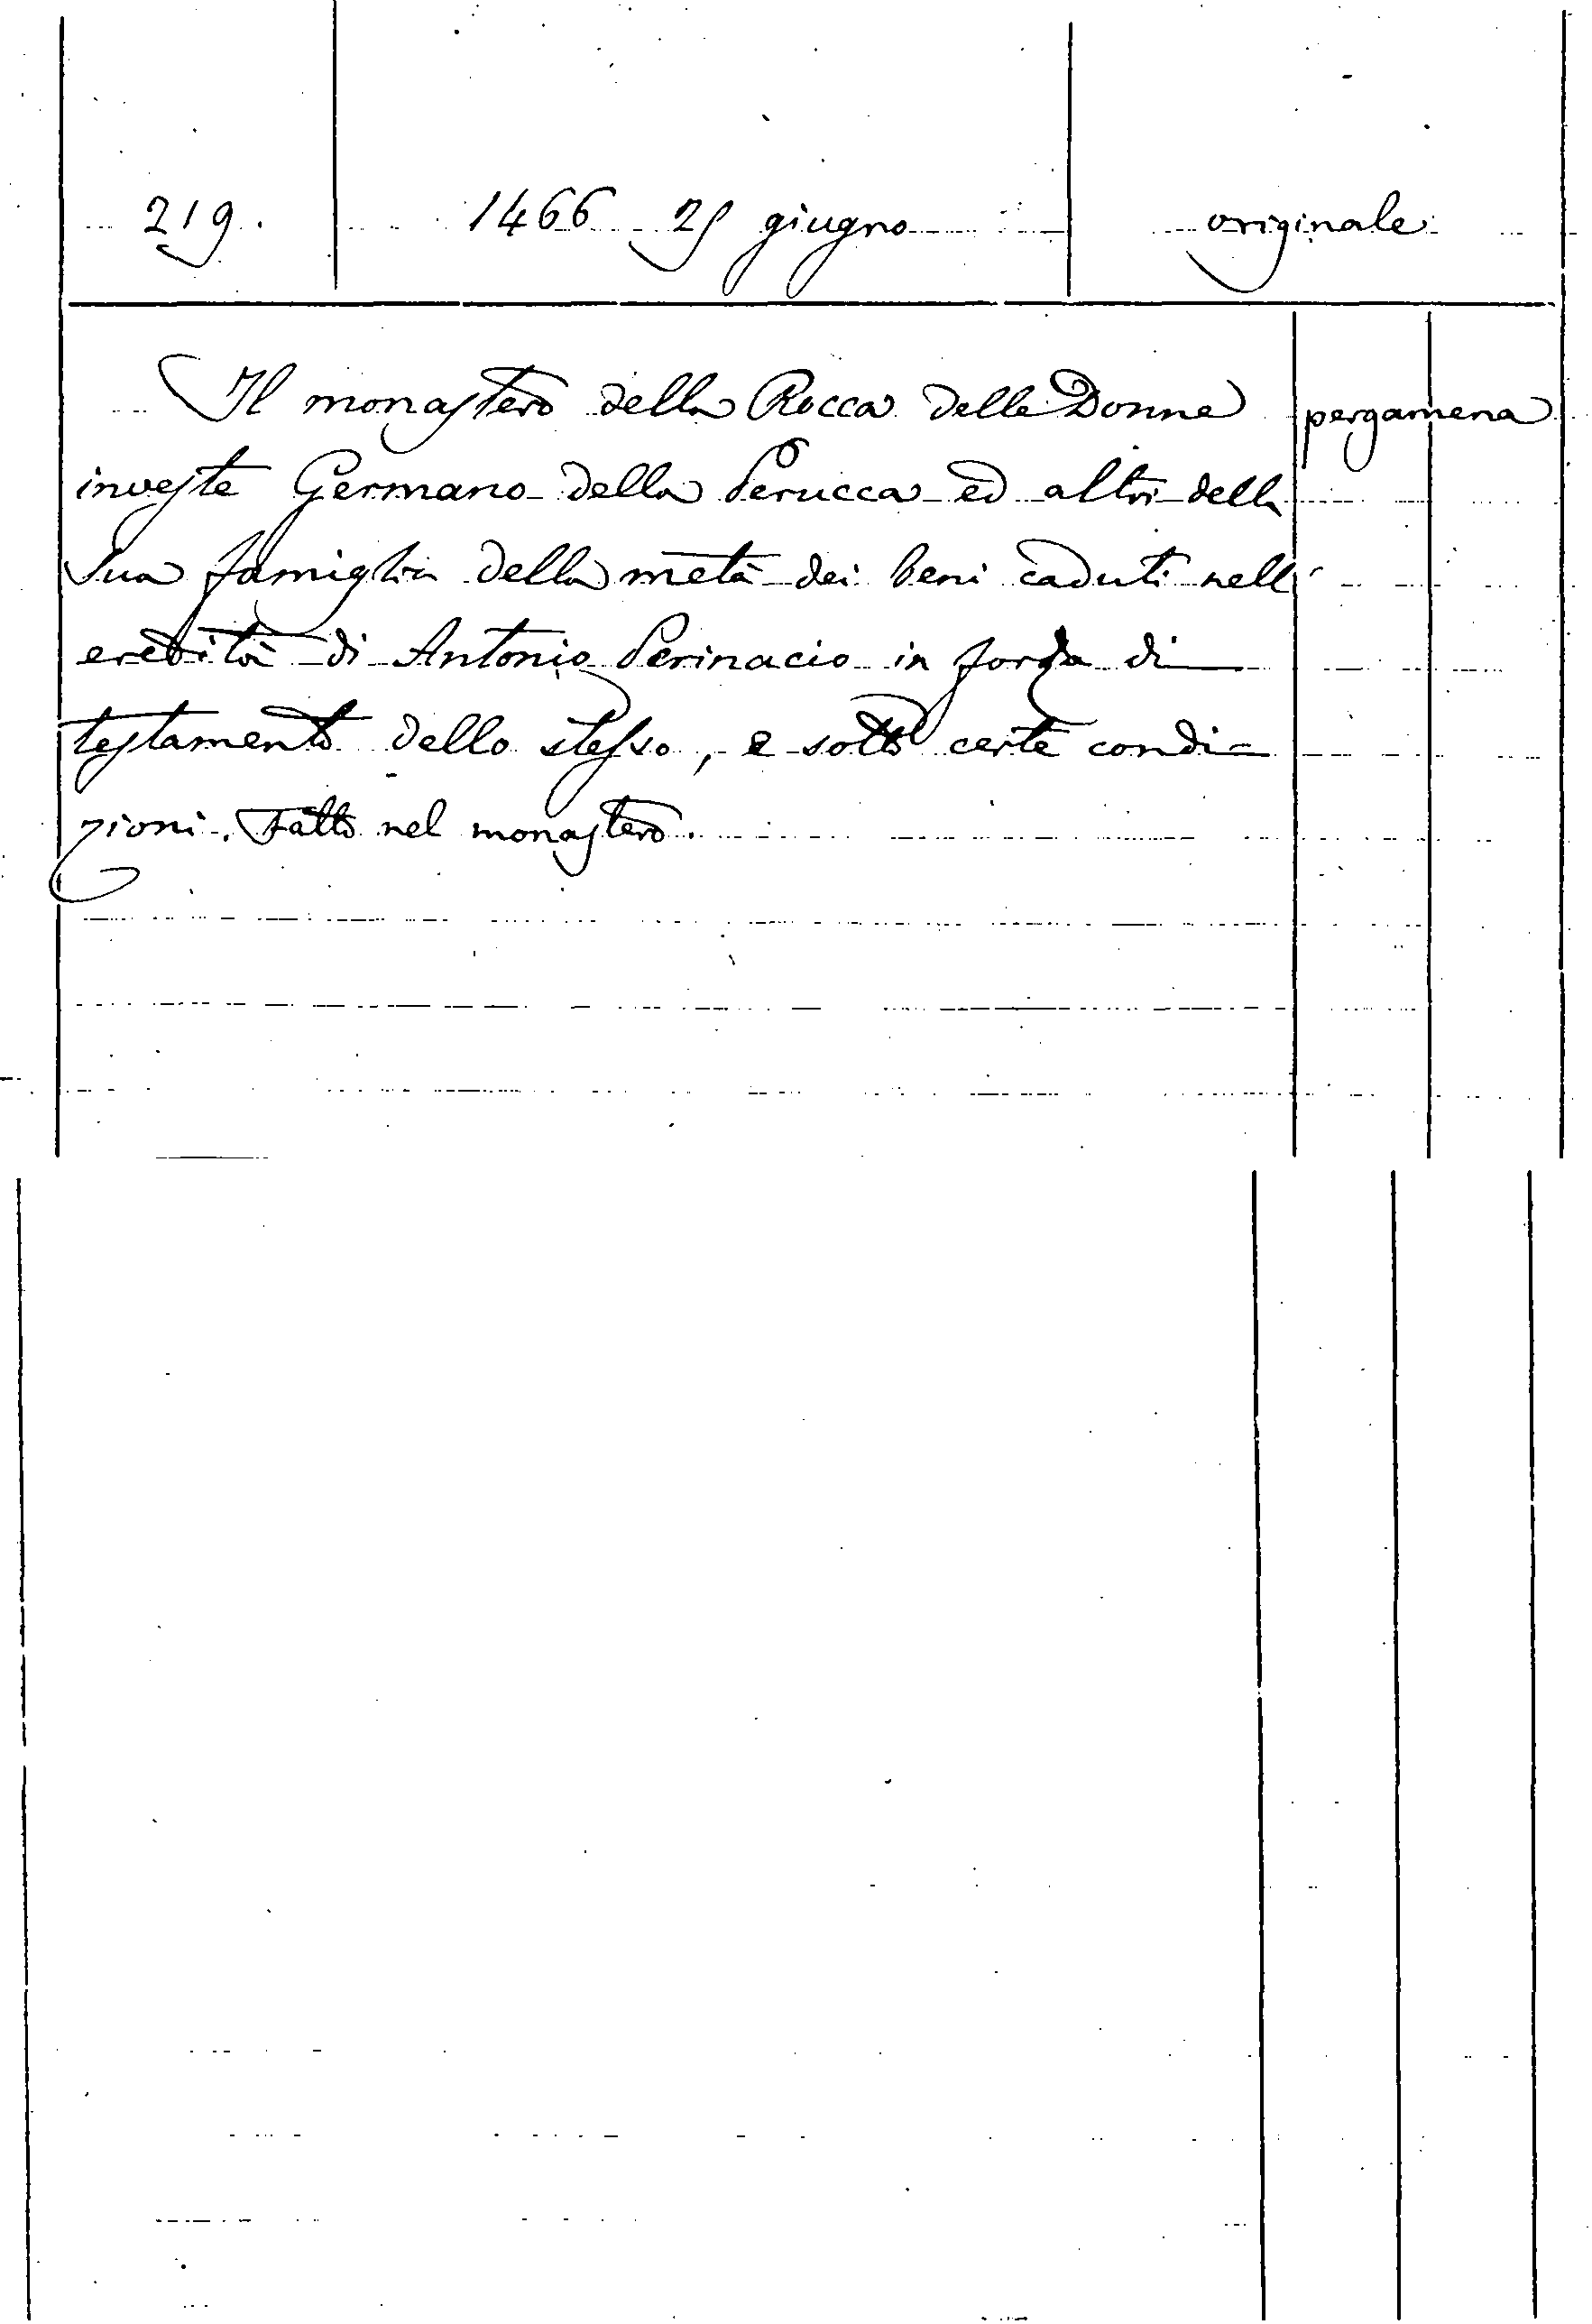 219. 1466 25 giugno originale
Il monastero della Rocca delle Donne pergamena
investe Germano della Perucca ed altri della
sua famiglia della metà dei beni caduti nell'
eredità di Antonio Perinacio in forza di
testamento dello stesso, e sotto certe condi=
zioni. Fatto nel monastero.